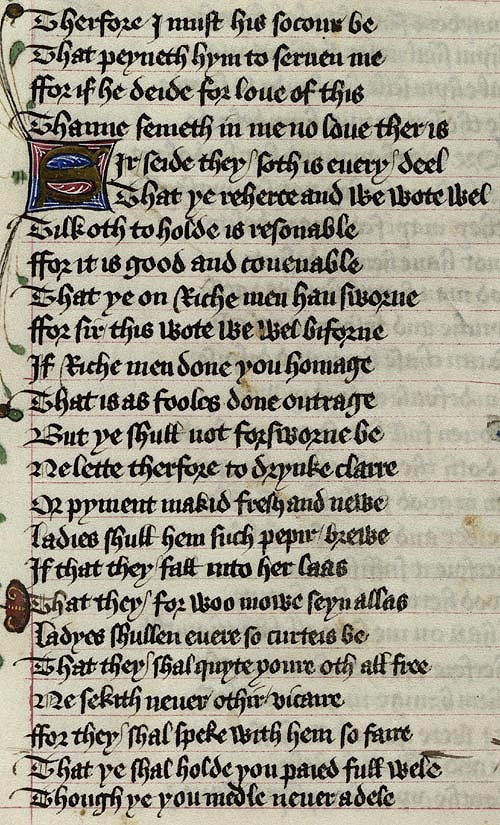 Therfore I must his socour be
That peyneth hym to seruen me
ffor if he deide for loue of this
Thanne semeth in me no loue ther is
Sir seide they soth is euery deel
That ye reherce and we wote wel
Tilk oth to holde is resonable
ffor it is good and couenable
That ye on Riche men han sworne
ffor sir this wote we wel biforne
If Riche men done you homage
That is as fooles done outrage
But ye shull not forsworne be
Ne lette therfore to drynke clarre
Or pyment makid fresh and newe
Ladies shull hem such pepir brewe
If that they fall into her laas
That they for woo mowe seyn allas
Ladyes shullen euere so curteis be
That they shal quyte youre oth all free
Ne sekith neuer othir vicaire
ffor they shal speke with hem so faire
That ye shal holde you paied full wele
Though ye you medle neuer a dele